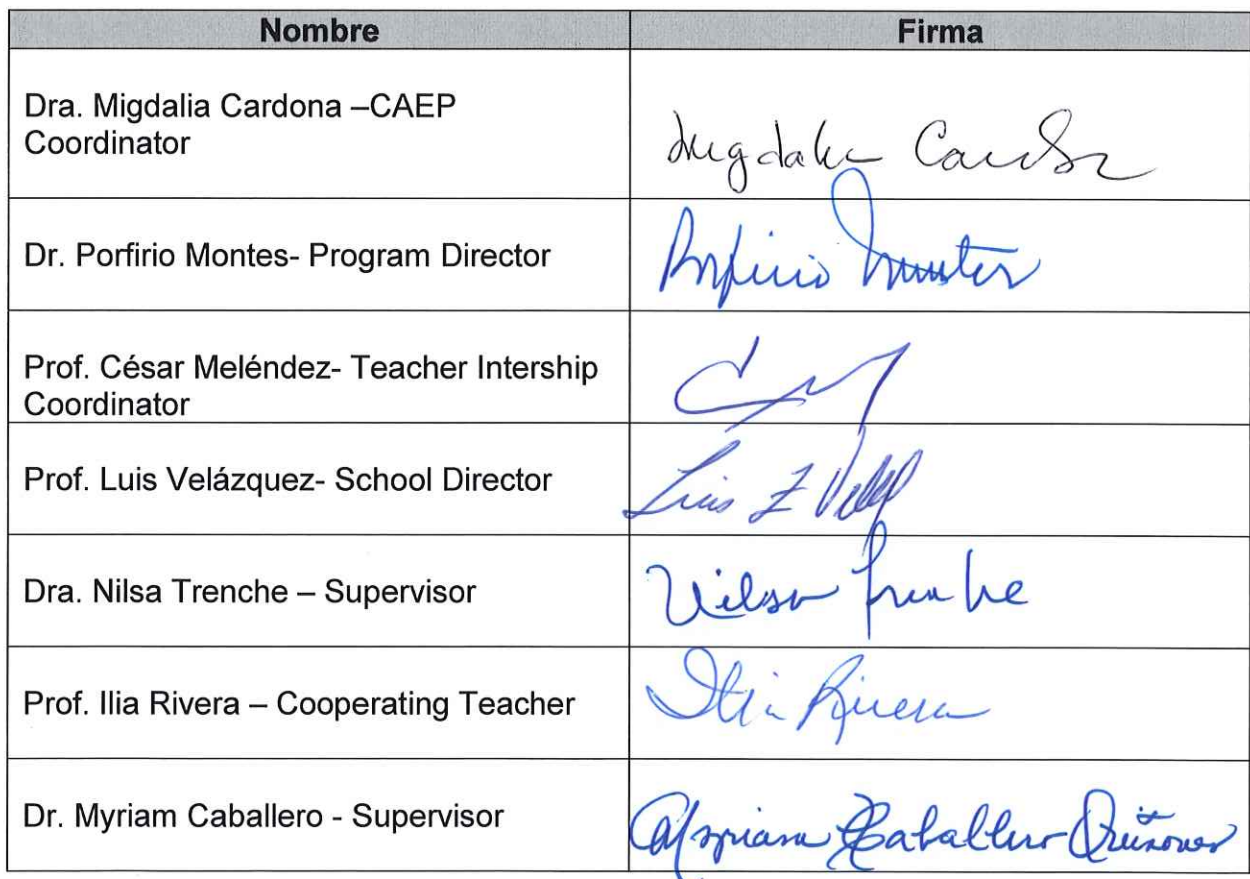 Nombre Firma
Dra. Migdalia Cardona –CAEP
Coordinator
Migdalia Cardona
Dr. Porfirio Montes- Program Director
Porfirio Montes
Prof. César Meléndez- Teacher Intership
Coordinator
Prof. Luis Velázquez- School Director
Luis
Dra. Nilsa Trenche – Supervisor
Nilsa Trenche
Prof. Ilia Rivera – Cooperating Teacher
Ilia Rivera
Dr. Myriam Caballero - Supervisor
Myriam Caballero Quiñones